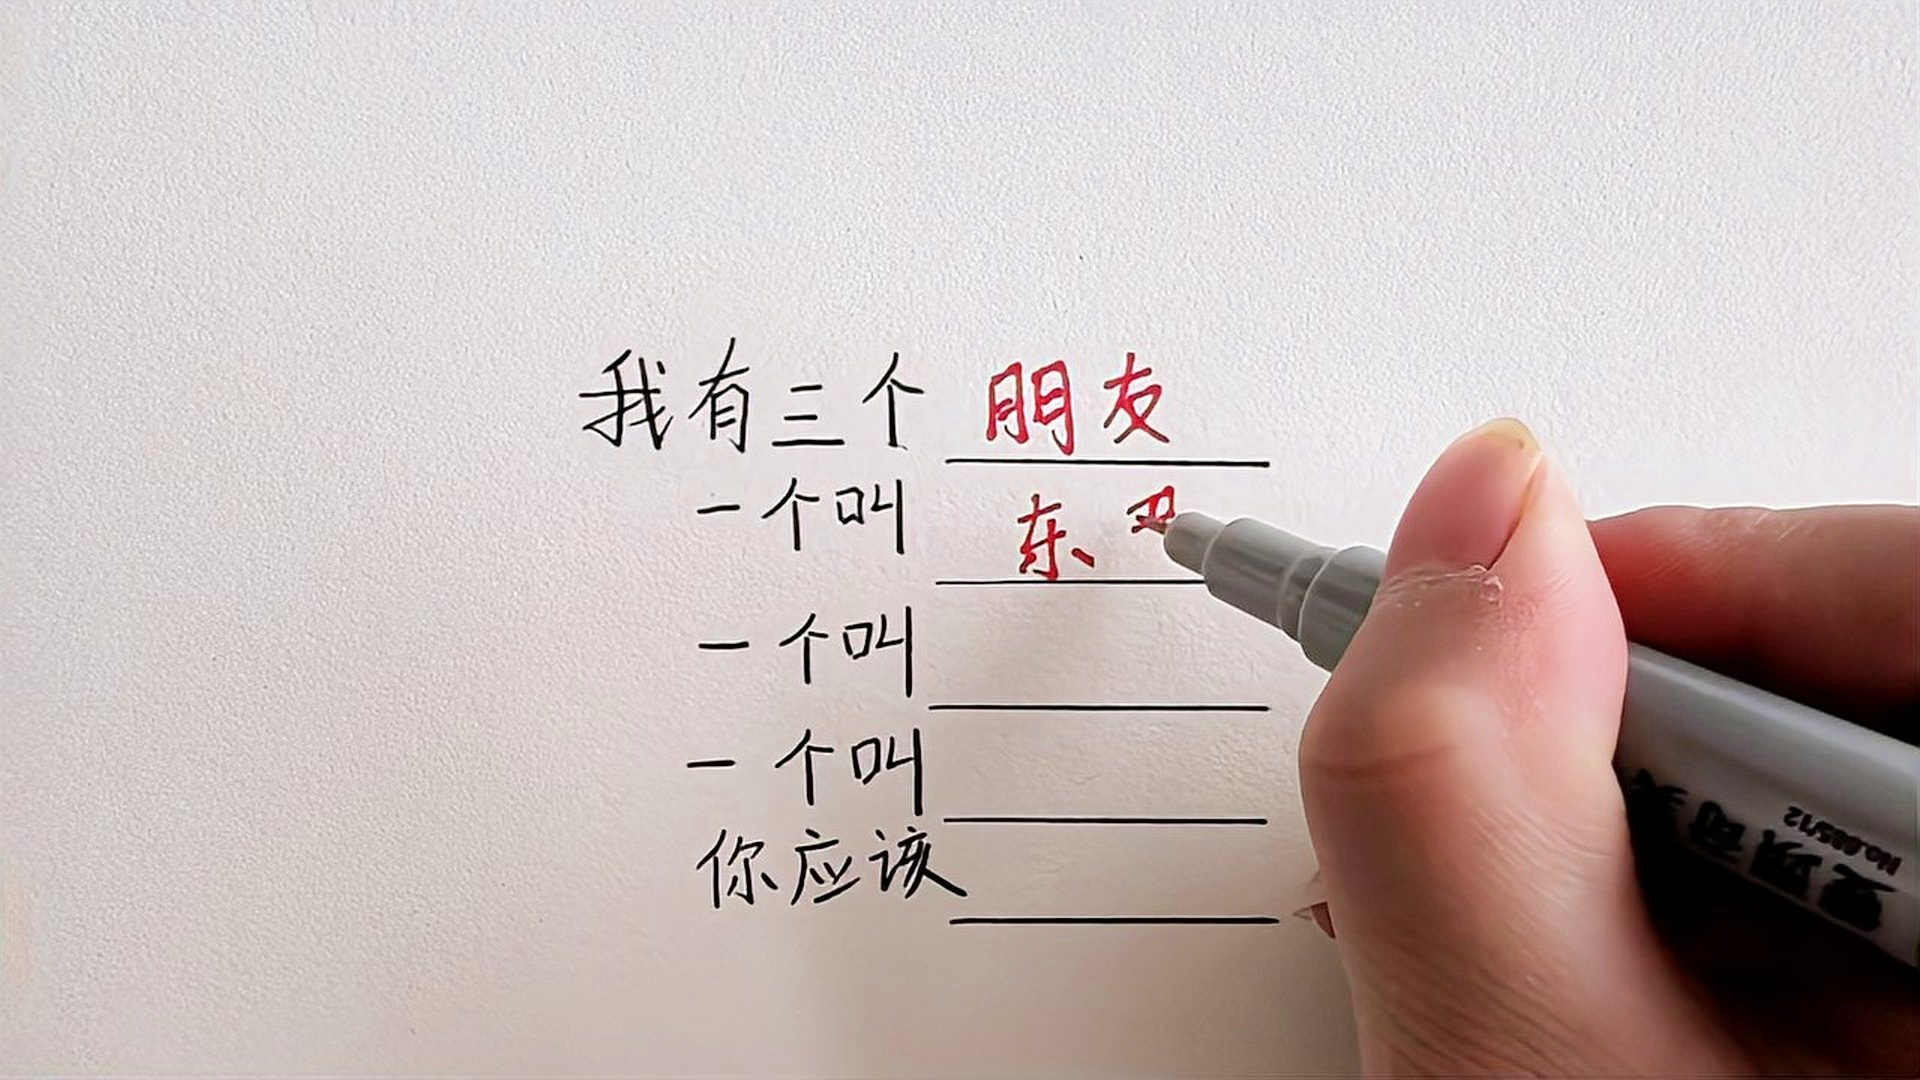 我有三个 朋友
一个叫 东
一个叫
一个叫
你应该
No.885/12